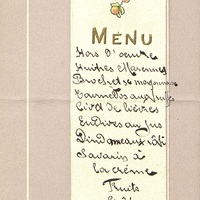 MENU
Hors d'oeuvre
Huitres Marennes
Brochet sce mayonnaise
Tournedos aux truffes
Civet de lièvres
Endives au jus
Dindonneaux rôti
Savarin à
la crème
Fruits